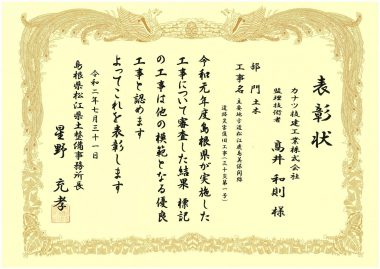 表彰状
カナツ技建工業株式会社
監理技術者
高井 和則 様
部 門 土木
工事名 主要地方道松江鹿島美保関線
道路災害復旧工事(三十災第一号)
令和元年度島根県が実施した
工事について審査した結果 標記
の工事は他の模範となる優良
工事と認めます
よってこれを表彰します
令和二年七月三十一日
島根県松江県土整備事務所長
星野 充孝